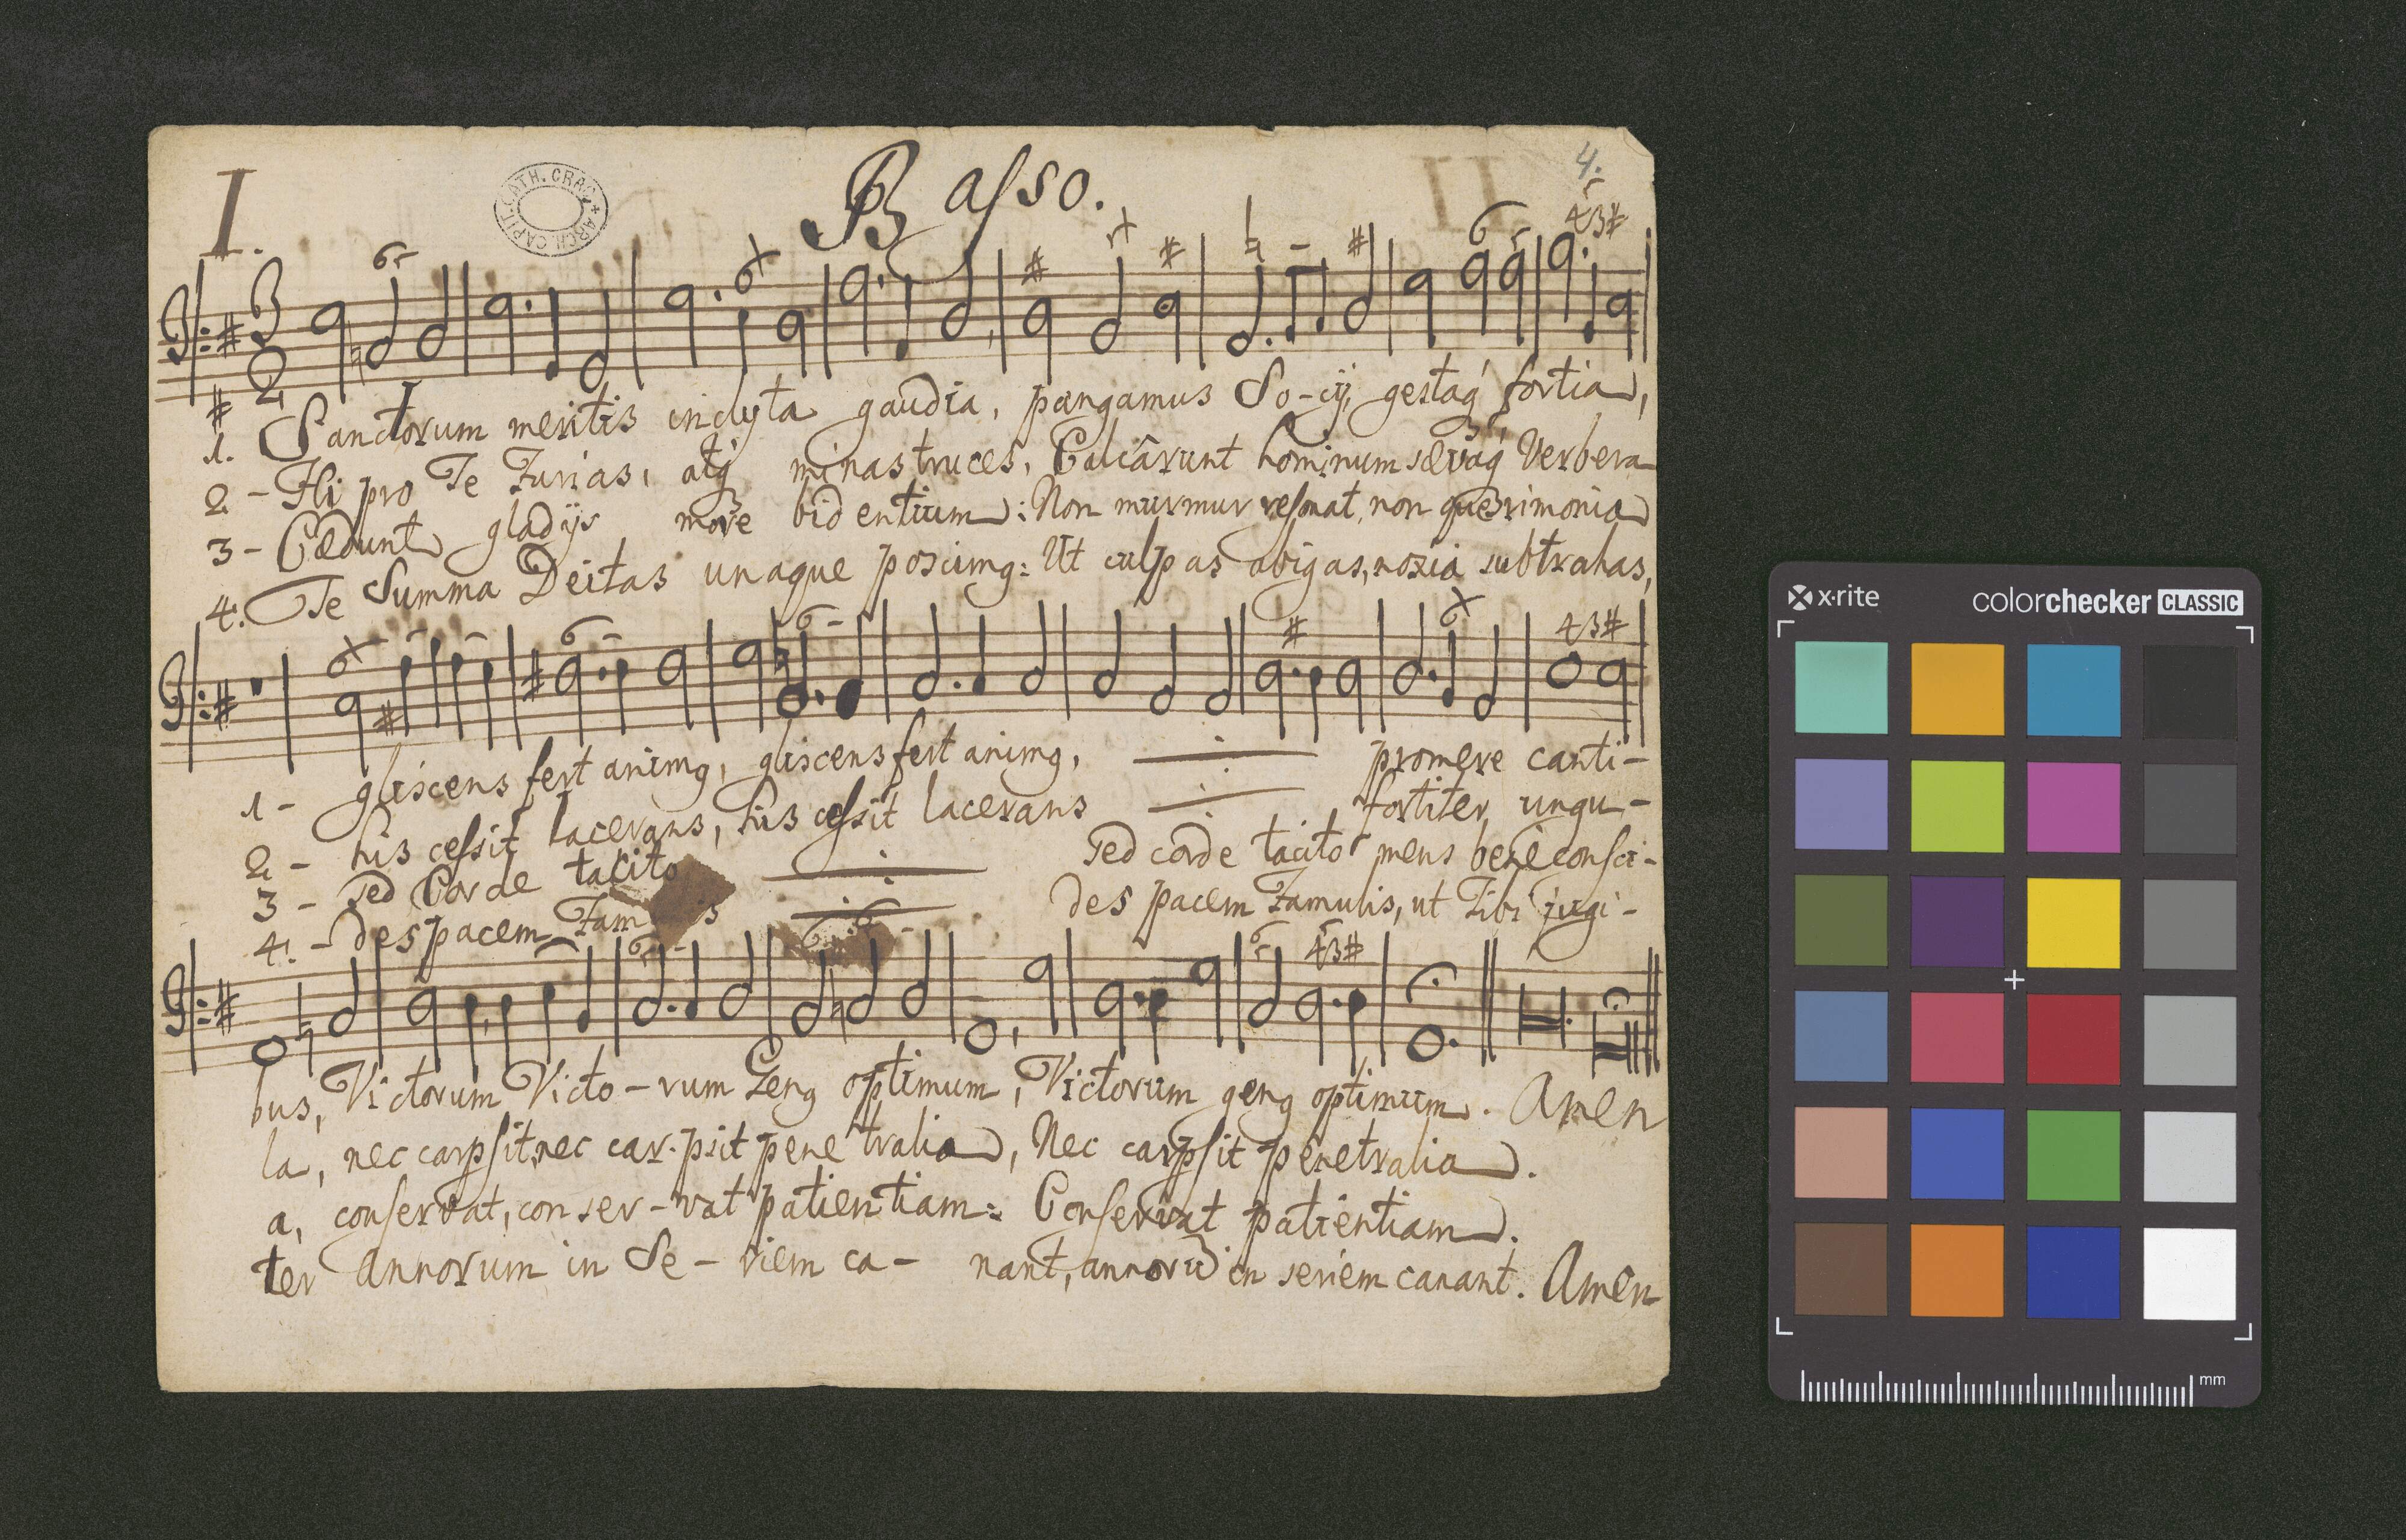 I.
CAPIT. CATH. CRAC. + ARCH. CAPIT.
Basso.
4.
1. Sanctorum meritis inclyta gaudia, pangamus So-cij, gestaq́ fortia,
2 - Hi pro Te Furias, atq́ minas truces, Calcârunt hominum sævaq́ Verbera
3 - Cædunt gladijs more bidentium: Non murmur resonat, non querimonia
4. Te Summa Deitas unaque poscimq: Ut culpas abigas, noxia subtrahas,
1 - gliscens fert animq, gliscens fert animq, promere canti-
2 - his cessit lacerans, his cessit lacerans fortiter ungu-
3 - Sed Corde tacito Sed corde tacito mens bene consci-
4. - des pacem Fam s des pacem Famulis, ut Tibi jugi-
bus, Victorum Victo-rum Genq optimum, Victorum genq optimum. Amen
la, nec carpsit, nec car-psit penetralia, Nec carpsit penetralia.
a, conservat, conser-vat patientiam: Conservat patientiam.
ter Annorum in Se-riem ca- nant, annorũ in seriem canant. Amen
x-rite
colorchecker CLASSIC
mm